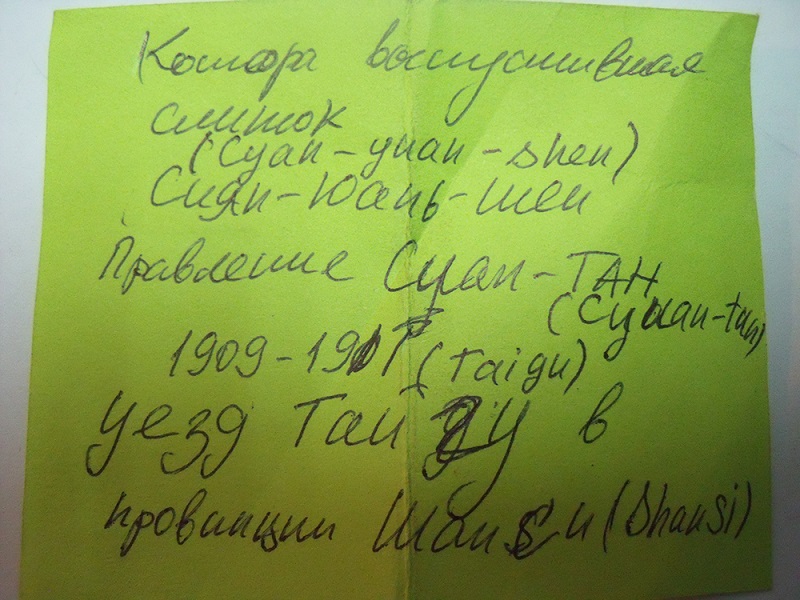 Контора выпустившая
слиток
(Cyan-yuan-shen)
Сиян-Юань-шен
Правление Суан-ТАН
(Cyuan-tan)
1909-1911
(Taigu)
уезд Тайгу в
провинции Шанси (Shansi)